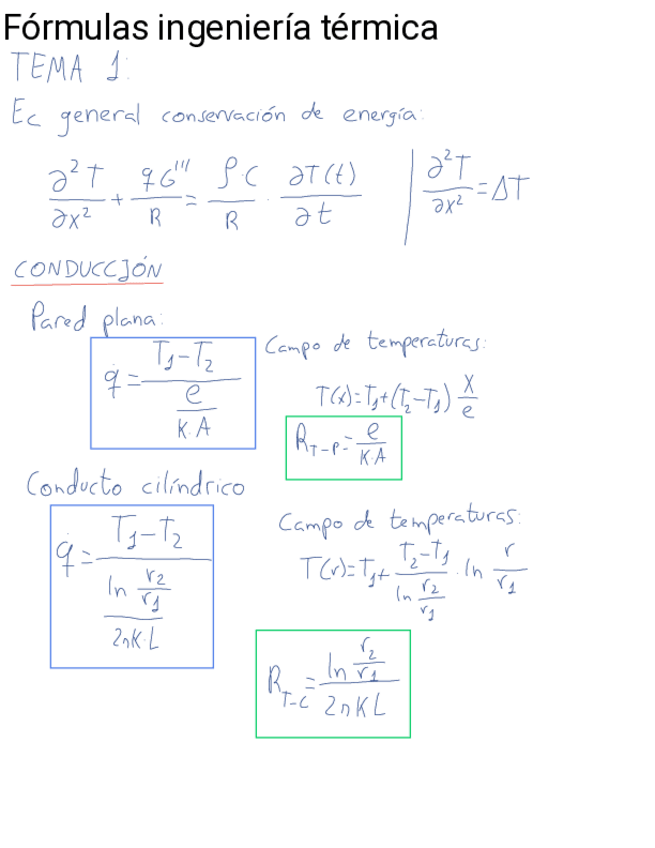 Fórmulas ingeniería térmica
TEMA 1:
Ec general conservación de energía:
∂²T/∂x² + q̇G'''/R = ρC/R · ∂T(t)/∂t | ∂²T/∂x² = ΔT
CONDUCCIÓN
Pared plana:
q̇ = (T₁-T₂)/(e/(K·A))
Campo de temperaturas:
T(x)=T₁+(T₂-T₁) x/e
R_T-P = e/(K·A)
Conducto cilíndrico
q̇ = (T₁-T₂)/((ln r₂/r₁)/(2πK·L))
Campo de temperaturas:
T(r)=T₁+ (T₂-T₁)/(ln r₂/r₁) · ln r/r₁
R_T-C = (ln r₂/r₁)/(2πKL)